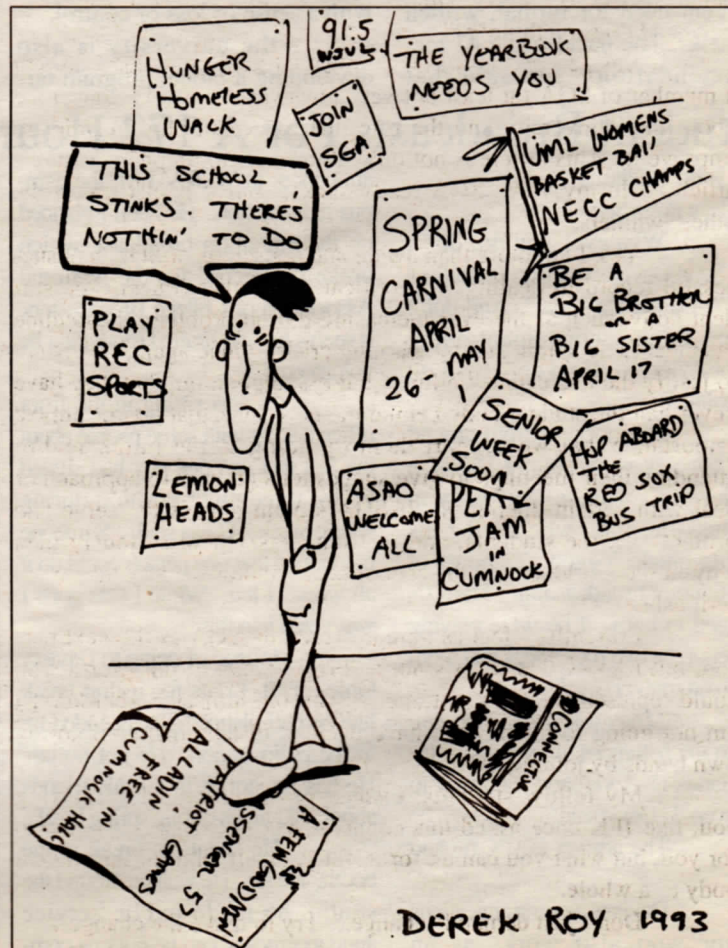 HUNGER
HOMELESS
WALK
91.5
WJUL
THE YEARBOOK
NEEDS YOU
JOIN
SGA
UML WOMENS
BASKET BAll
NECC CHAMPS
THIS SCHOOL
STINKS. THERE'S
NOTHIN' TO DO
SPRING
CARNIVAL
APRIL
26- MAY
1
BE A
BIG BROTHER
or A
BIG SISTER
APRIL 17
PLAY
REC
SPORTS
SENIOR
WEEK
SOON
HOP ABOARD
THE
RED SOX
BUS TRIP
LEMON
HEADS
ASAO
WELCOME
ALL
JAM
IN
CUMNOCK
CONNECTOR
ALLADIN
FREE IN
CUMNOCK HALL
PATRIOT GAMES
SSENGER 57
A FEW GOOD MEN
DEREK ROY 1993